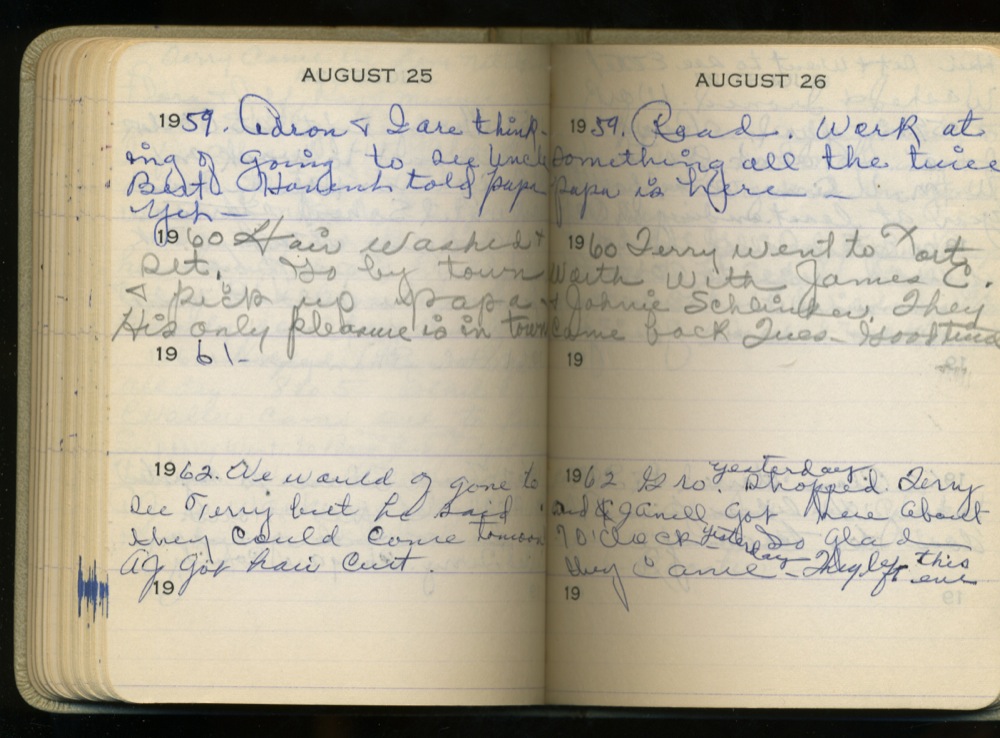 AUGUST 25
1959. Adron & I are think-
ing of going to see Uncle
Bert. Havent told papa
yet -
1960 Hair washed &
set. Go by town
& pick up papa.
His only pleasure is in town
1961-
1962. We would of gone to
see Terry but he said
they could come tomorow
AJ got hair cut.
19
AUGUST 26
1959. Read. Work at
something all the time
papa is here -
1960 Terry went to Fort
Worth with James C.
& Johnie They
came back Tues - Good time
19
1962 Gro. Shopped yesterday. Terry
and Janell got here about
7 O'clock yesterday So glad
they came - They left this
eve
19